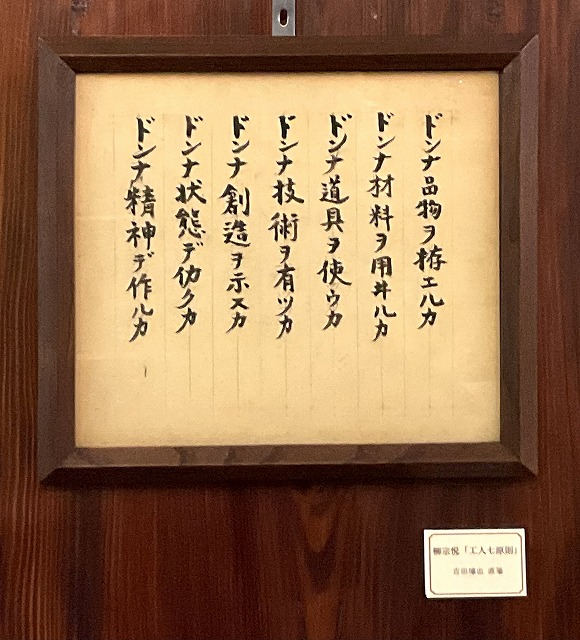 ドンナ品物ヲ拵エルカ
ドンナ材料ヲ用ヰルカ
ドンナ道具ヲ使ウカ
ドンナ技術ヲ有ツカ
ドンナ創造ヲ示スカ
ドンナ状態デ仂クカ
ドンナ精神デ作ルカ
柳宗悦「工人七原則」
吉田璋也 直筆